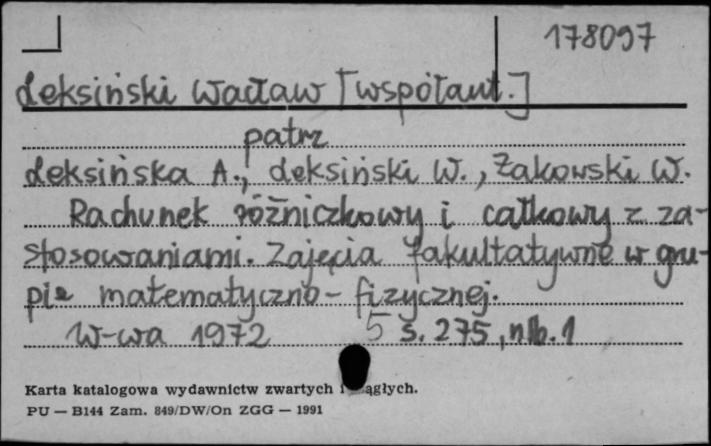 178097
Leksiński Wacław [współaut.]
patrz
Leksińska A., Leksiński W., Żakowski W.
Rachunek różniczkowy i całkowy z za-
stosowaniami. Zajęcia fakultatywne w gru-
pie matematyczno-fizycznej.
W-wa 1972 5 s. 275, nlb. 1
Karta katalogowa wydawnictw zwartych i ągłych.
PU — B144 Zam. 849/DW/On ZGG — 1991